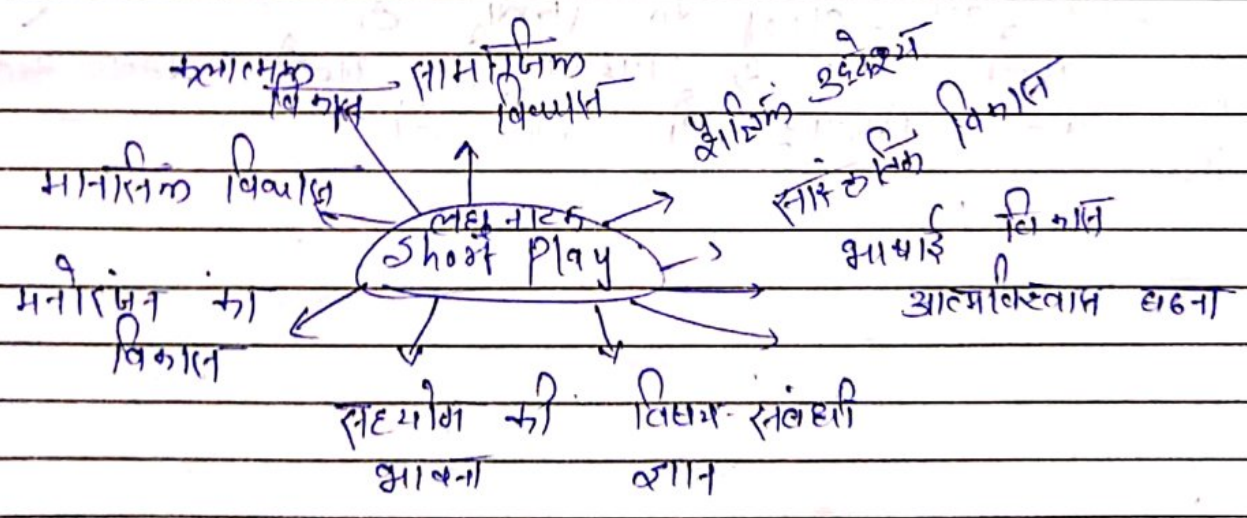 कलात्मक
विकास
सामाजिक
विकास
शैक्षिक उद्देश्य
सांस्कृतिक विकास
मानसिक विकास
लघु नाटक
Short Play
भाषाई विकास
मनोरंजन का
विकास
आत्मविश्वास बढना
सहयोग की
भावना
विषय-संबंधी
ज्ञान